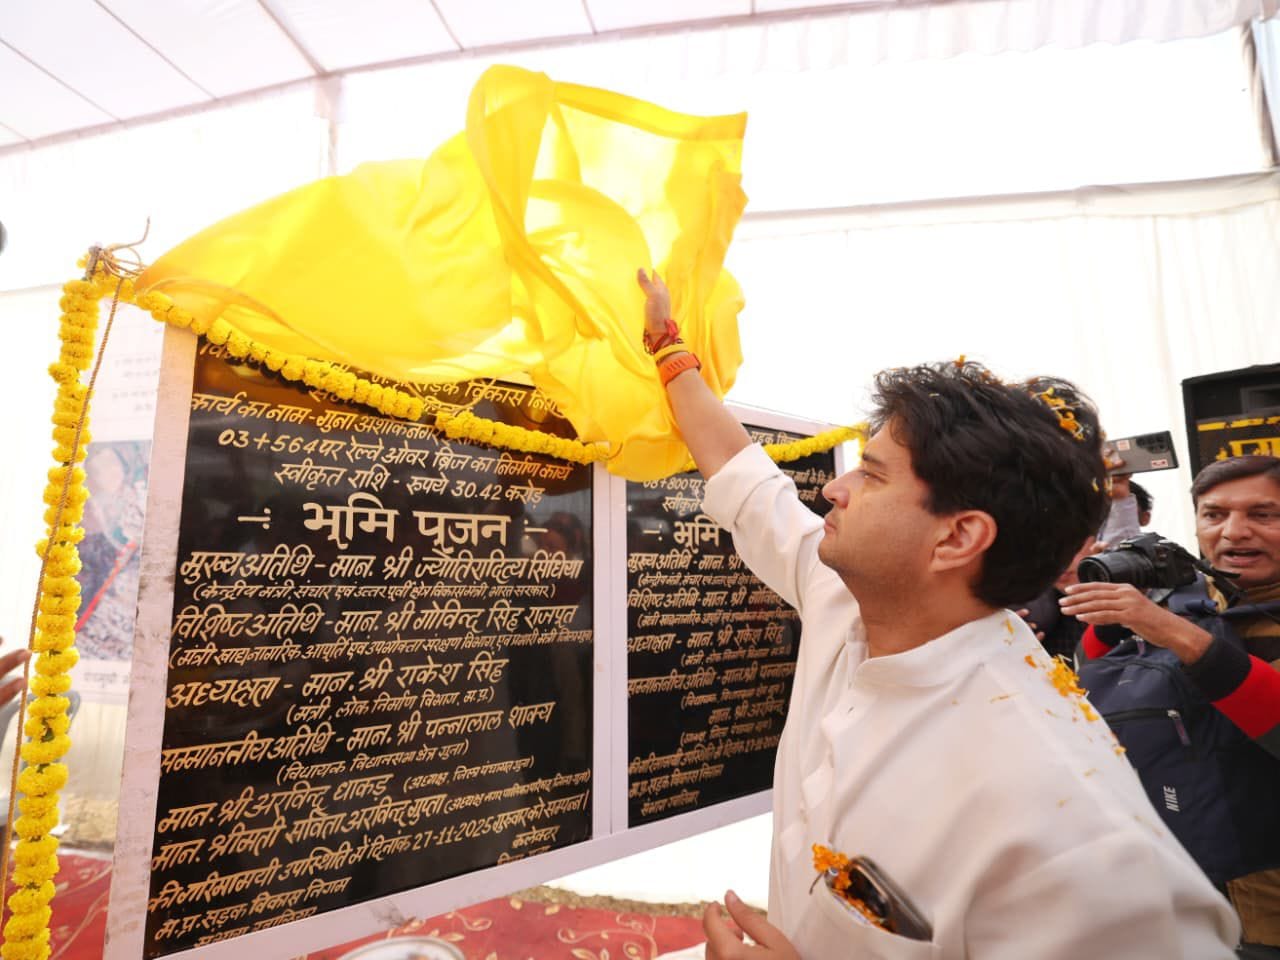 सड़क विकास निगम
कार्य का नाम - गुना अशोकनगर
03+564 पर रेल्वे ओवर ब्रिज का निर्माण कार्य
स्वीकृत राशि - रुपये 30.42 करोड़
-: भूमि पूजन :-
मुख्य अतिथि - मान. श्री ज्योतिरादित्य सिंधिया
(केन्द्रीय मंत्री, संचार एवं उत्तर पूर्वी क्षेत्र विकास मंत्री, भारत सरकार)
विशिष्ट अतिथि - मान. श्री गोविन्द सिंह राजपूत
(मंत्री खाद्य नागरिक आपूर्ति एवं उपभोक्ता संरक्षण विभाग, एवं प्रभारी मंत्री जिला गुना)
अध्यक्षता - मान. श्री राकेश सिंह
(मंत्री, लोक निर्माण विभाग, म.प्र.)
सम्माननीय अतिथि - मान. श्री पन्नालाल शाक्य
(विधायक विधानसभा क्षेत्र गुना)
मान. श्री अरविन्द धाकड़ (अध्यक्ष, जिला पंचायत गुना)
मान. श्रीमती सविता अरविन्द गुप्ता (अध्यक्ष नगर पालिका परिषद, जिला गुना)
की गरिमामयी उपस्थिति में दिनांक 27-11-2025 गुरुवार को सम्पन्न।
म.प्र. सड़क विकास निगम
कलेक्टर
संभाग ग्वालियर
08+800 पर
स्वीकृत
-: भूमि
मुख्य अतिथि - मान. श्री
(केन्द्रीय मंत्री, संचार एवं उत्तर पूर्वी क्षेत्र
विशिष्ट अतिथि - मान. श्री गोवि
(मंत्री खाद्य नागरिक आपूर्ति एवं उपभोक्ता
अध्यक्षता - मान. श्री राकेश सिंह
(मंत्री, लोक निर्माण विभाग, म.प्र.)
सम्माननीय अतिथि - मान. श्री पन्नालाल
(विधायक, विधानसभा क्षेत्र
मान. श्री अरविन्द
(अध्यक्ष, जिला पंचायत
म.प्र. सड़क विकास निगम
संभाग ग्वालियर
NIKE